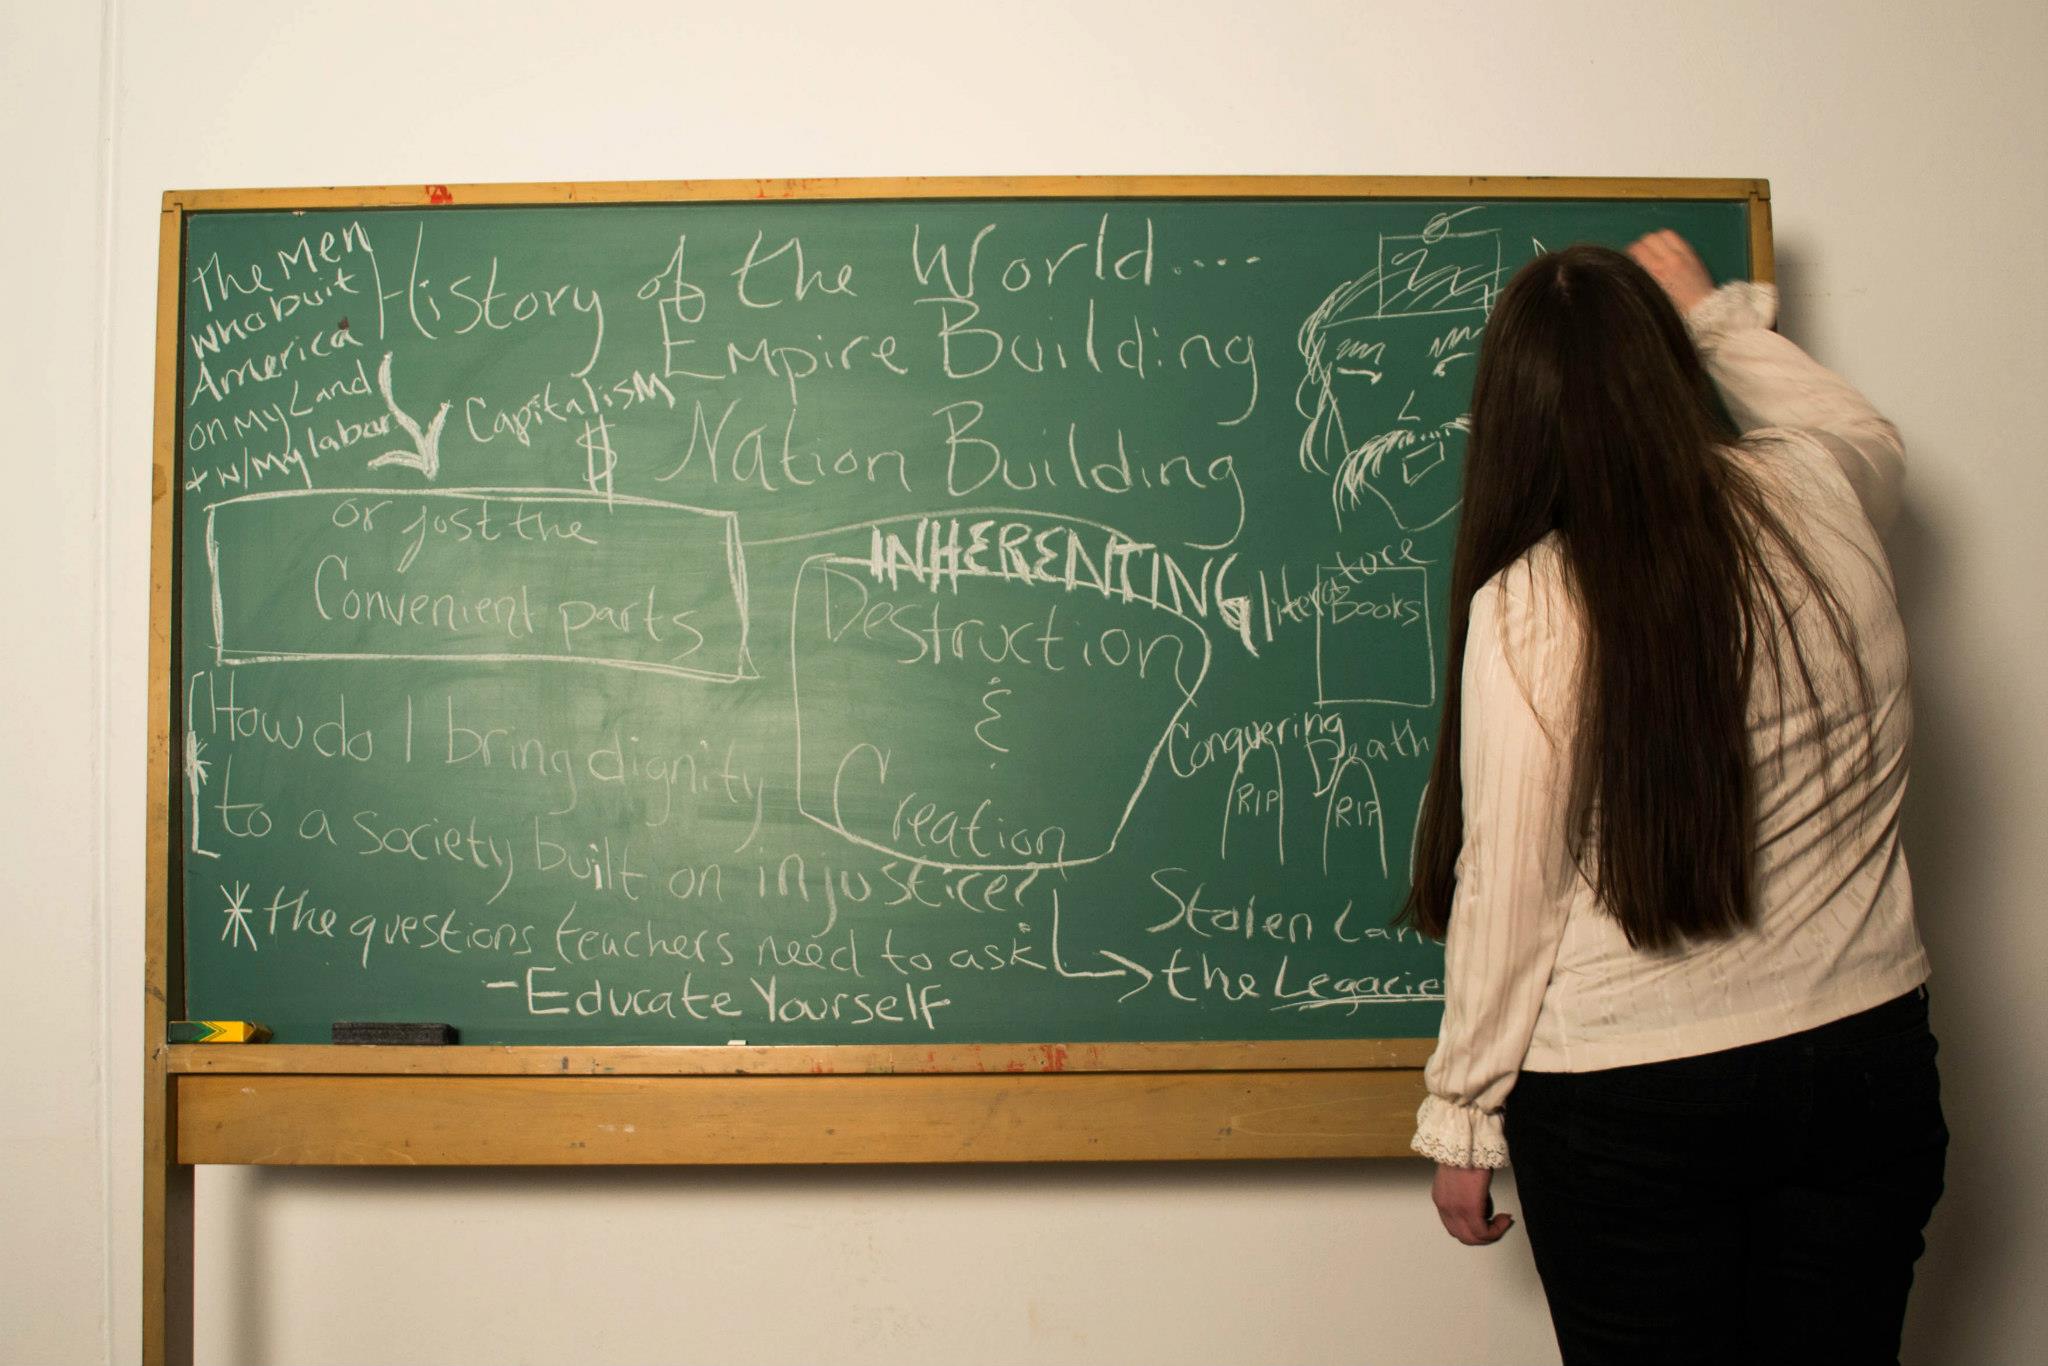 the Men
who buit
America
on My Land
+ w/My labor
History of the World....
Empire Building
Capitalism
$
Nation Building
or just the
Convenient parts
INHERENTING
Destruction
&
Creation
literature
Books
Conquering
Death
RIP
RIP
How do I bring dignity
to a society built on injustice?
* the questions teachers need to ask
- Educate Yourself
Stolen
the Legacie